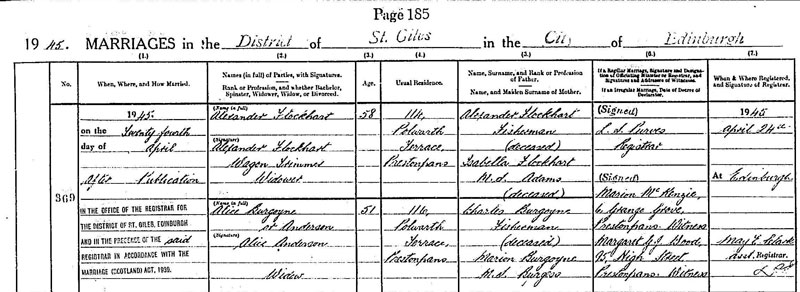 Page 185
1945. MARRIAGES in the District of St. Giles in the City of Edinburgh
(1.) (2.) (3.) (4.) (5.) (6.) (7.)
No.
When, Where, and How Married.
Names (in full) of Parties, with Signatures.
Rank or Profession, and whether Bachelor,
Spinster, Widower, Widow, or Divorced.
Age.
Usual Residence.
Name, Surname, and Rank or Profession
of Father.
Name, and Maiden Surname of Mother.
If a Regular Marriage, Signature and Designation
of Officiating Minister or Registrar, and
Signatures and Addresses of Witnesses.
If an Irregular Marriage, Date of Decree of
Declarator.
When & Where Registered,
and Signature of Registrar.
369
1945.
on the Twenty fourth
day of April
After Publication
IN THE OFFICE OF THE REGISTRAR FOR
THE DISTRICT OF ST. GILES, EDINBURGH
AND IN THE PRESENCE OF THE said
REGISTRAR IN ACCORDANCE WITH THE
MARRIAGE (SCOTLAND) ACT, 1939.
(Name in full)
Alexander Flockhart
(Signature)
Alexander Flockhart
Wagon Trimmer
Widower
58
116,
Polwarth
Terrace,
Prestonpans
Alexander Flockhart
Fisherman
(deceased)
Isabella Flockhart
M.S. Adams
(deceased)
(Signed)
L. S. Purves
Registrar
(Signed)
Marion McKenzie,
6 Grange Grove,
Prestonpans Witness
Margaret Hood,
High Street
Prestonpans. Witness
1945
April 24th
At Edinburgh
May E. Black
asst. Registrar.
(Name in full)
Alice Burgoyne
or Anderson
(Signature)
Alice Anderson
Widow
51
116,
Polwarth
Terrace,
Prestonpans
Charles Burgoyne
Fisherman
(deceased)
Marion Burgoyne
M.S. Burgess